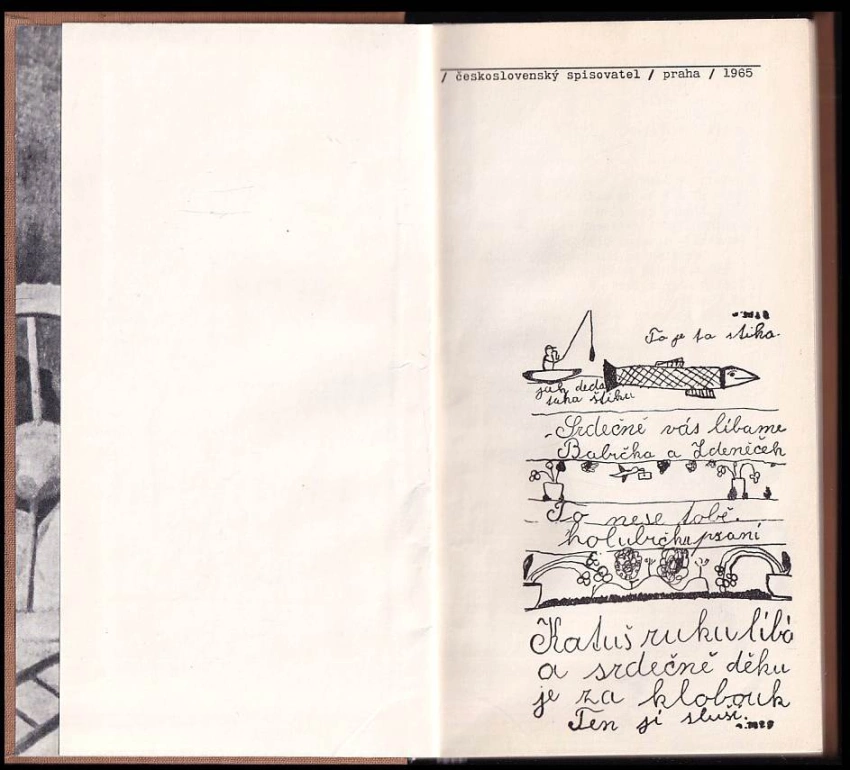 / československý spisovatel / praha / 1965
To je ta štika.
jak deda
taha štiku
Srdečně vás líbame
Babička a Zdeniček
To nese tobě
holubička psaní
Katuš ruku líbá
a srdečně děku
je za klobouk
Ten jí sluší.